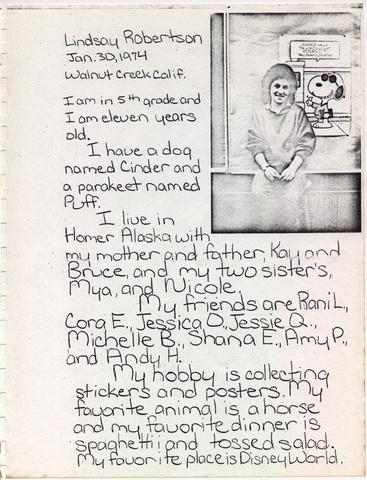 Lindsay Robertson
Jan. 30, 1974
Walnut Creek Calif.
I am in 5th grade and
I am eleven years
old.
I have a dog
named Cinder and
a parakeet named
Puff.
I live in
Homer Alaska with
my mother and father, Kay and
Bruce, and my two sister's,
Mya, and Nicole.
My friends are Rani L.,
Cora E., Jessica O., Jessie Q.,
Michelle B., Shana E., Amy P.,
and Andy H.
My hobby is collecting
stickers and posters. My
favorite animal is a horse
and my favorite dinner is
spaghetti and tossed salad.
My favorite place is Disney World.